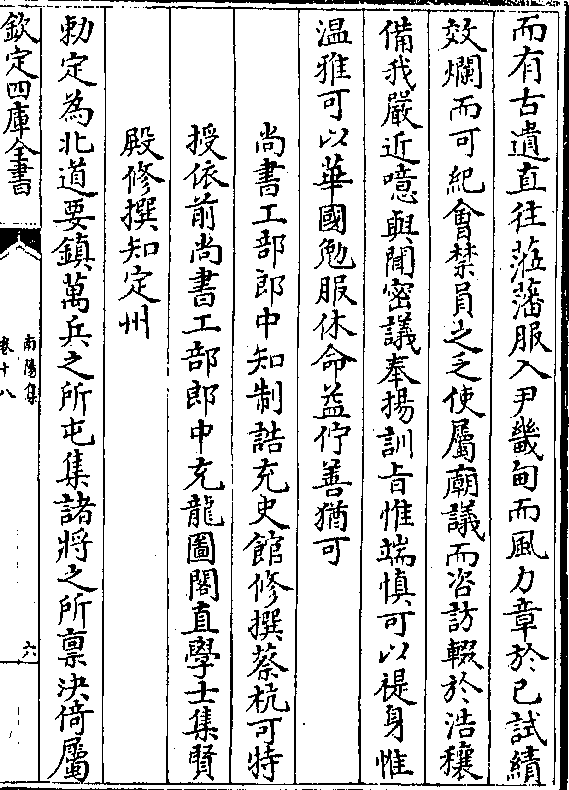 而有古遺直往涖藩服入尹畿甸而風力章於已試績
效爛而可紀會禁員之乏使屬廟議而咨訪輟於浩穰
備我嚴近噫與聞密議奉揚訓旨惟端慎可以禔身惟
温雅可以華國勉服休命益佇善猶可
尚書工部郎中知制誥充史館修撰蔡杭可特
授依前尚書工部郎中充龍圖閣直學士集賢
殿修撰知定州
勅定為北道要鎮萬兵之所屯集諸將之所禀決倚屬
欽定四庫全書
南陽集
卷十八
六